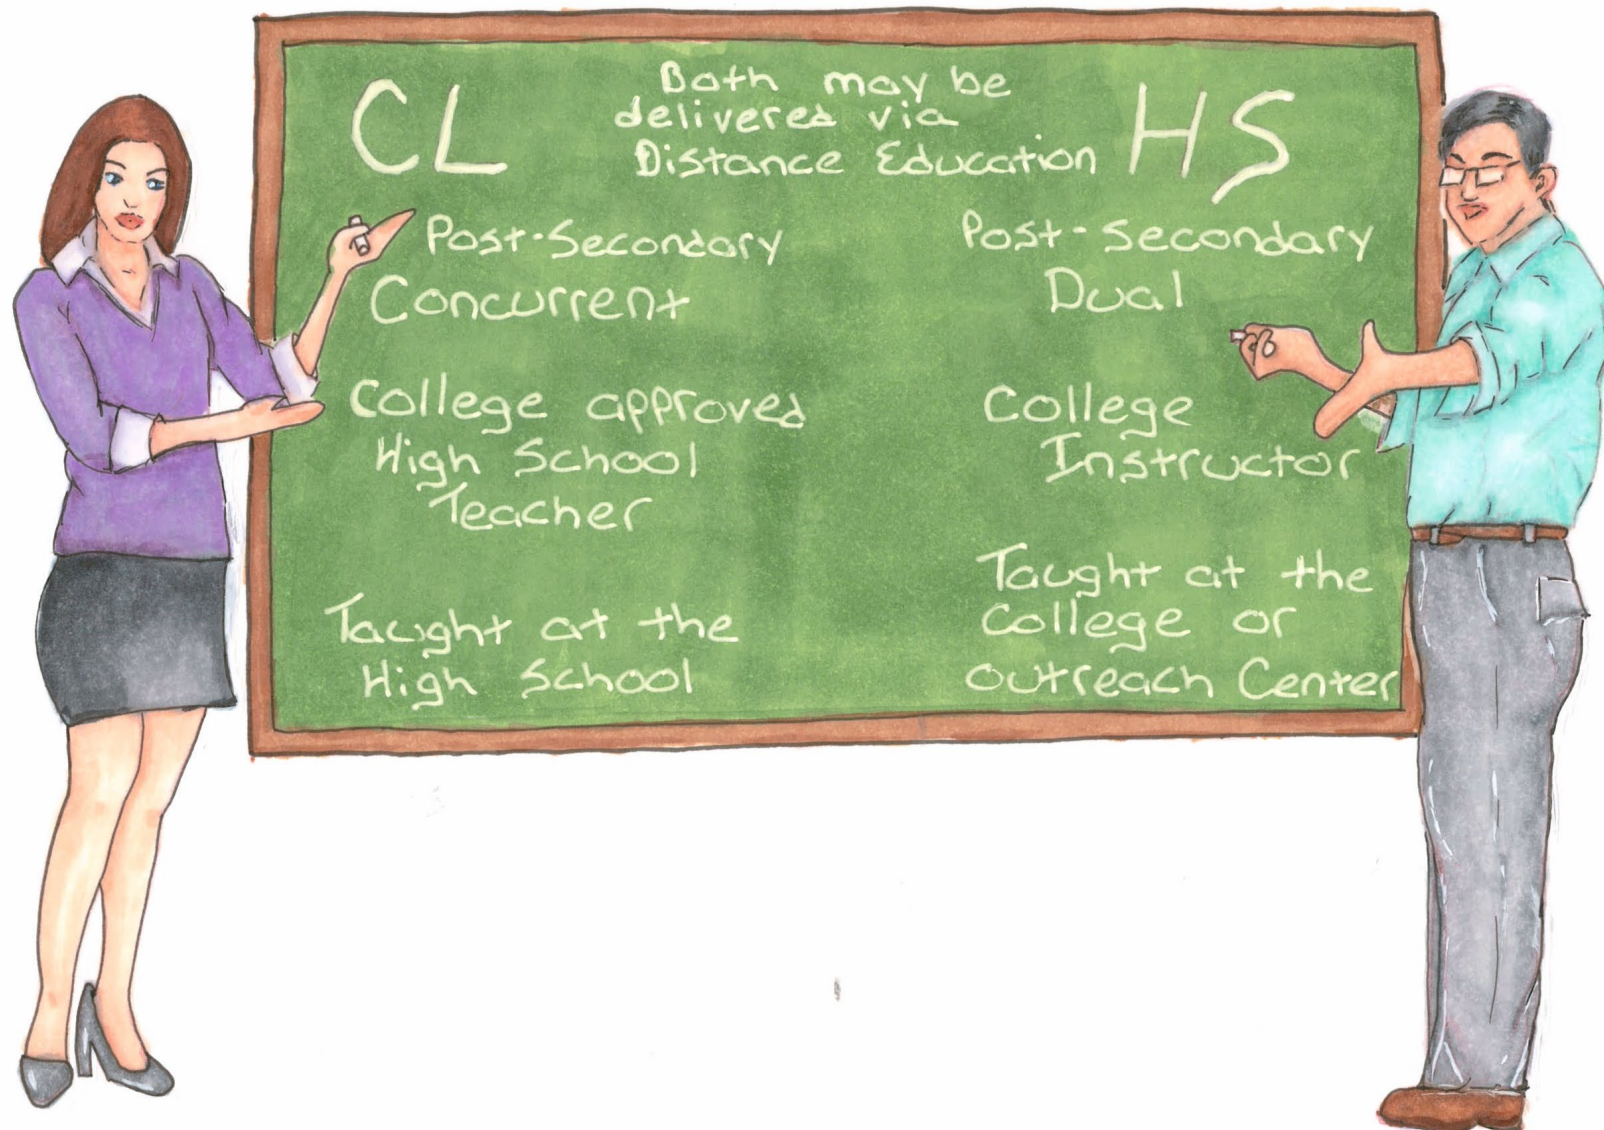 CL
Both may be
delivered via
Distance Education
HS
Post-Secondary
Concurrent
College approved
High School
Teacher
Taught at the
High School
Post-Secondary
Dual
College
Instructor
Taught at the
College or
Outreach Center